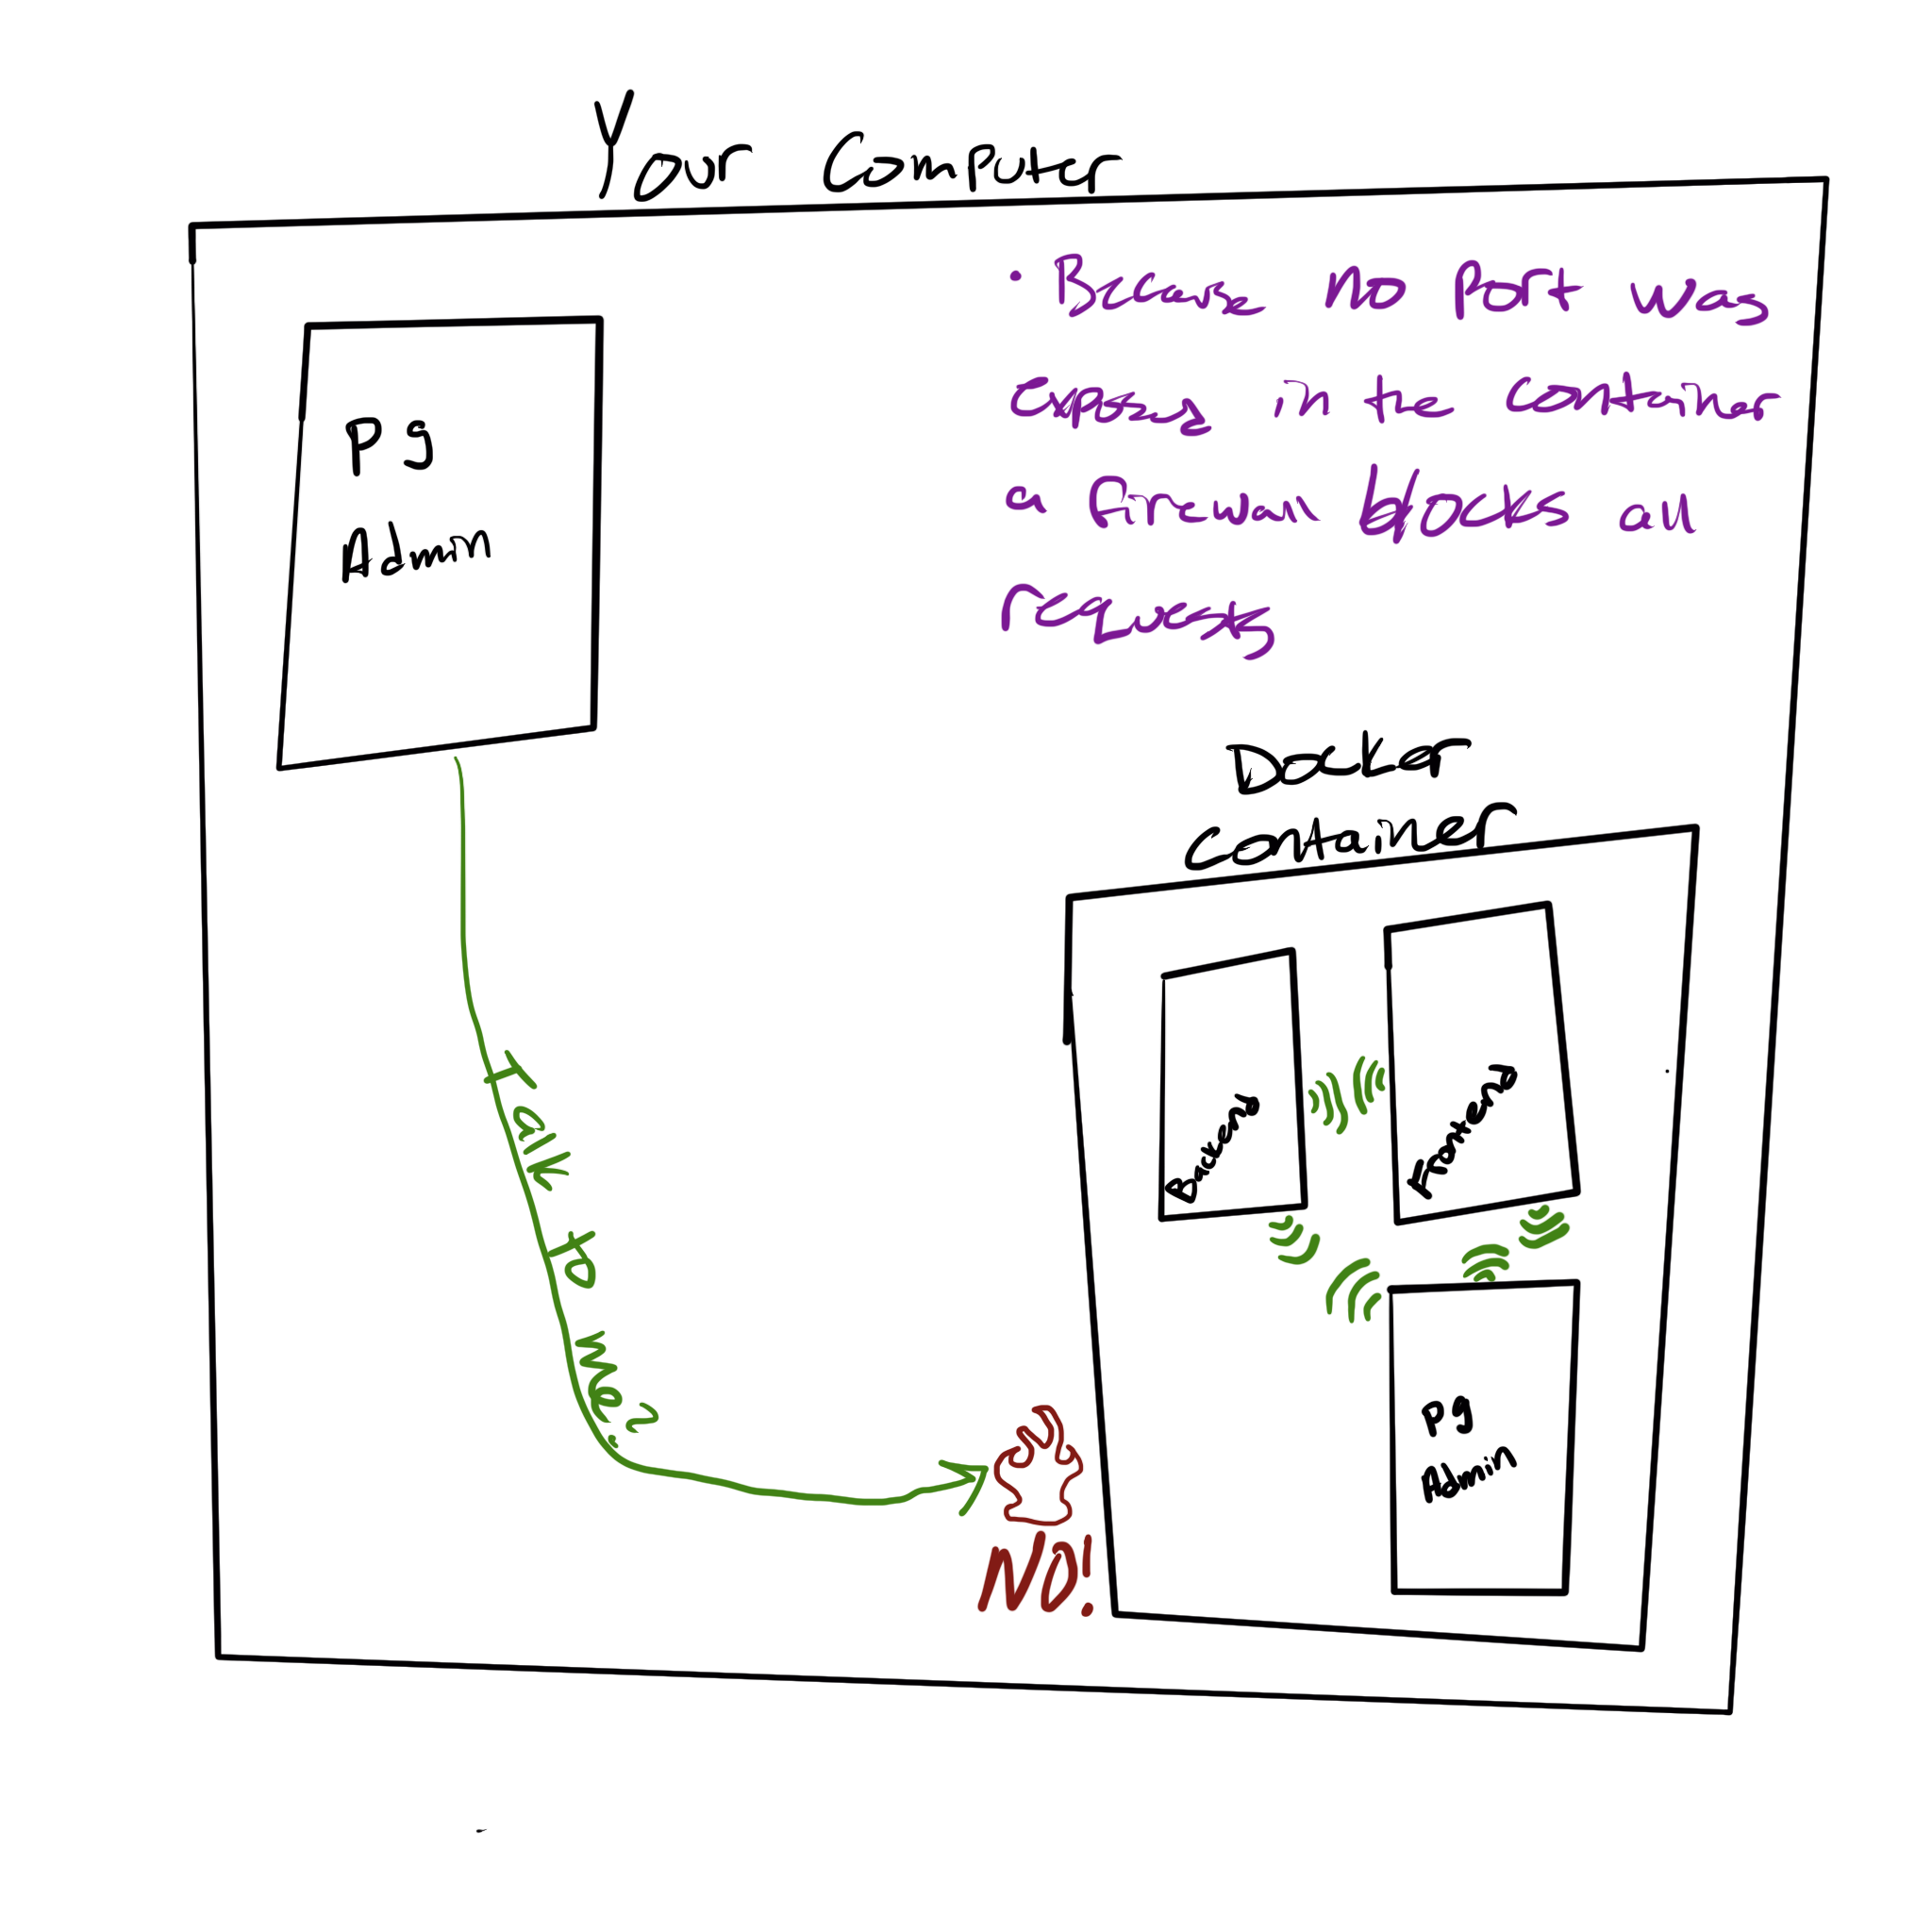 Your Computer
• Because no Port was
exposed in the container
a firewall blocks all
requests
PG
Admin
Docker
Container
Backend
Frontend
Talk to me?
PG
Admin
NO!